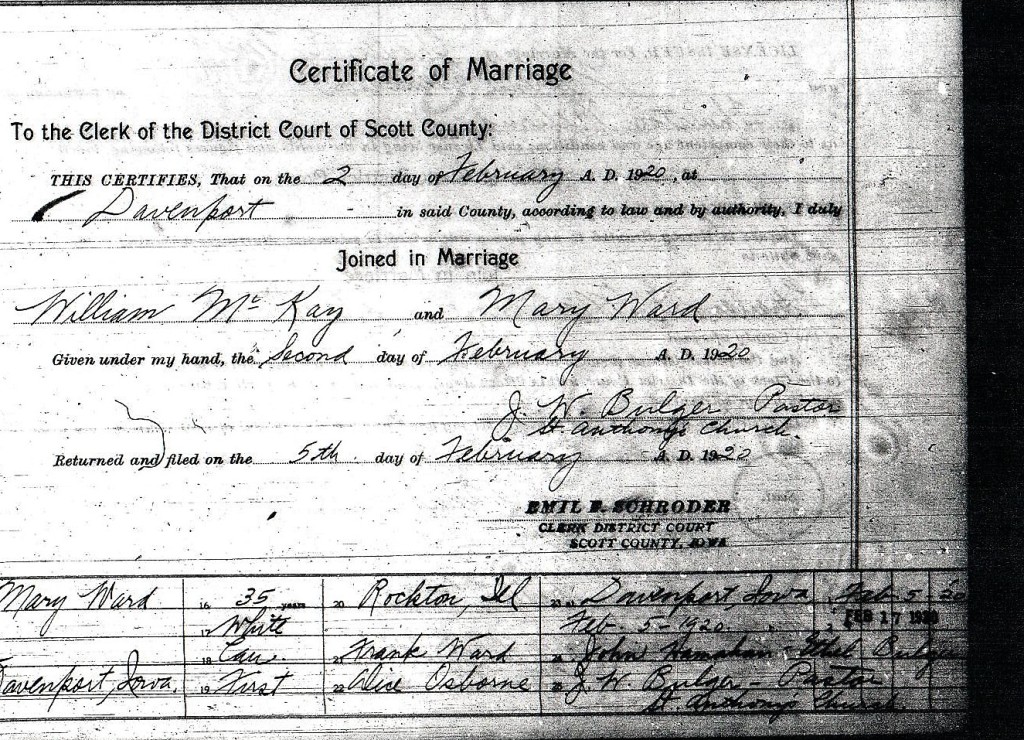 Certificate of Marriage
To the Clerk of the District Court of Scott County:
THIS CERTIFIES, That on the 2 day of February A. D. 1920, at
Davenport in said County, according to law and by authority, I duly
Joined in Marriage
William Mc Kay and Mary Ward
Given under my hand, the Second day of February A. D. 1920
J. W. Bulger Pastor
St. Anthony's Church.
Returned and filed on the 5th day of February A. D. 1920
EMIL E. SCHRODER
CLERK DISTRICT COURT
SCOTT COUNTY, IOWA
Mary Ward 16 35 years 20 Rockton, Ill Davenport, Iowa Feb - 5 - 20
17 White Feb. 5 - 1920. FEB 17 1920
18 Cau. 21 Frank Ward John Ethel Bulger
Davenport, Iowa. 19 First 22 Alice Osborne J. W. Bulger - Pastor
St. Anthony's Church